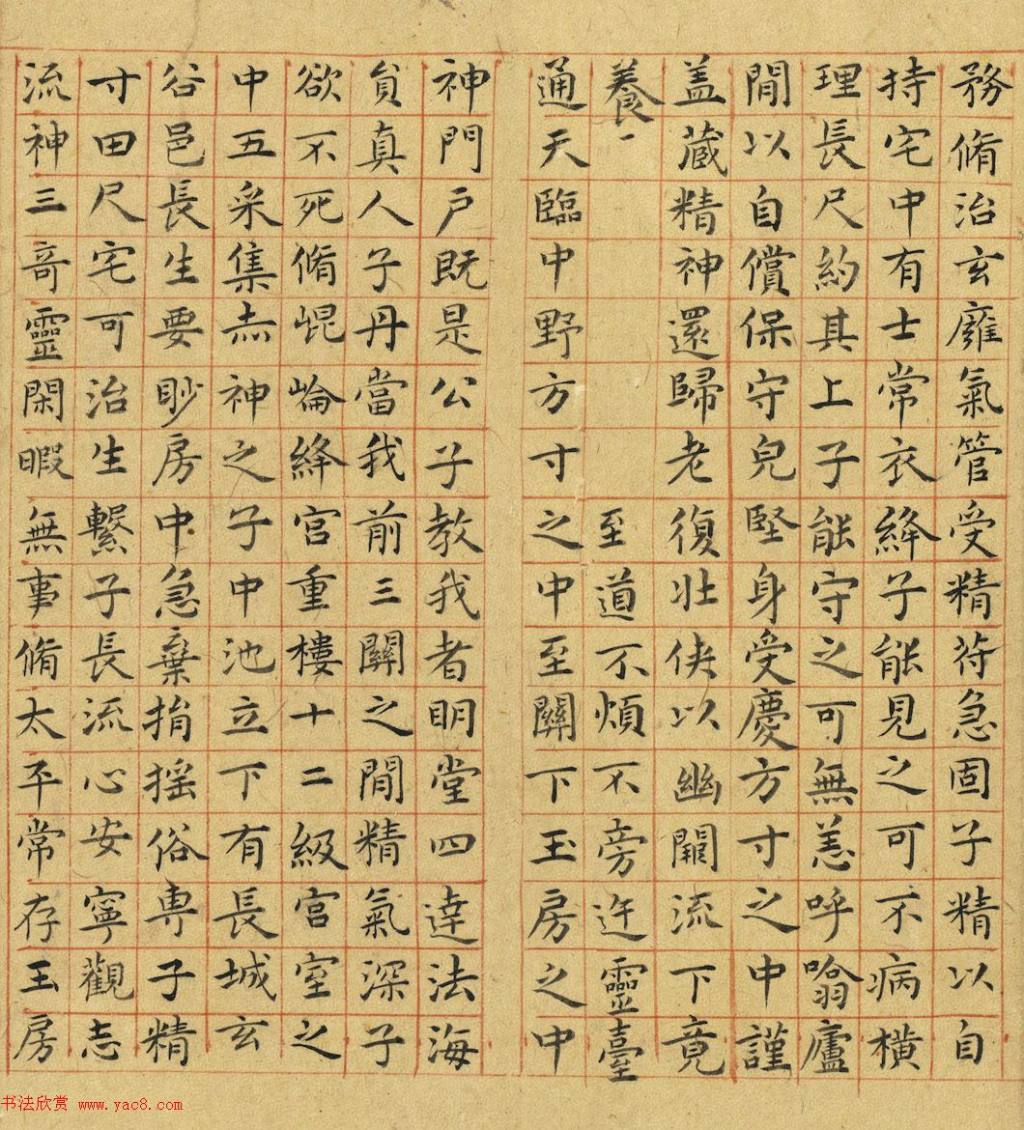 務脩治玄廱氣管受精苻急固子精以自
持宅中有士常衣絳子能見之可不病橫
理長尺約其上子能守之可無恙呼噏廬
間以自償保守皃堅身受慶方寸之中謹
盖藏精神還歸老復壯俠以幽關流下竟
養一至道不煩不旁迕靈臺
通天臨中野方寸之中至關下玉房之中
神門戶既是公子教我者明堂四達法海
貟真人子丹當我前三關之間精氣深子
欲不死脩崐崘絳宮重樓十二級宮室之
中五采集赤神之子中池立下有長城玄
谷邑長生要眇房中急棄捐搖俗專子精
寸田尺宅可治生繫子長流心安寧觀志
流神三奇靈閑暇無事脩太平常存玉房
书法欣赏 www.yac8.com